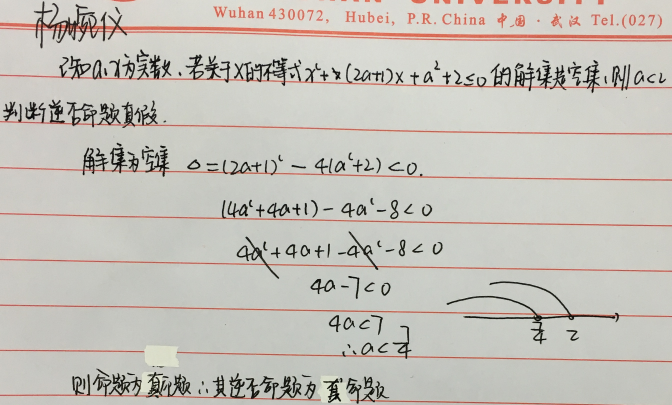 UNIVERSITY
Wuhan 430072, Hubei, P.R. China 中国·武汉 Tel.(027)
杨婉仪
已知a,x为实数,若关于x的不等式x²+(2a+1)x+a²+2≤0的解集是空集,则a<2
判断逆否命题真假.
解集为空集 △=(2a+1)²-4(a²+2)<0.
(4a²+4a+1)-4a²-8<0
4a²+4a+1-4a²-8<0
4a-7<0
4a<7
∴a<7/4
7/4 2
则命题为真命题∴其逆否命题为真命题